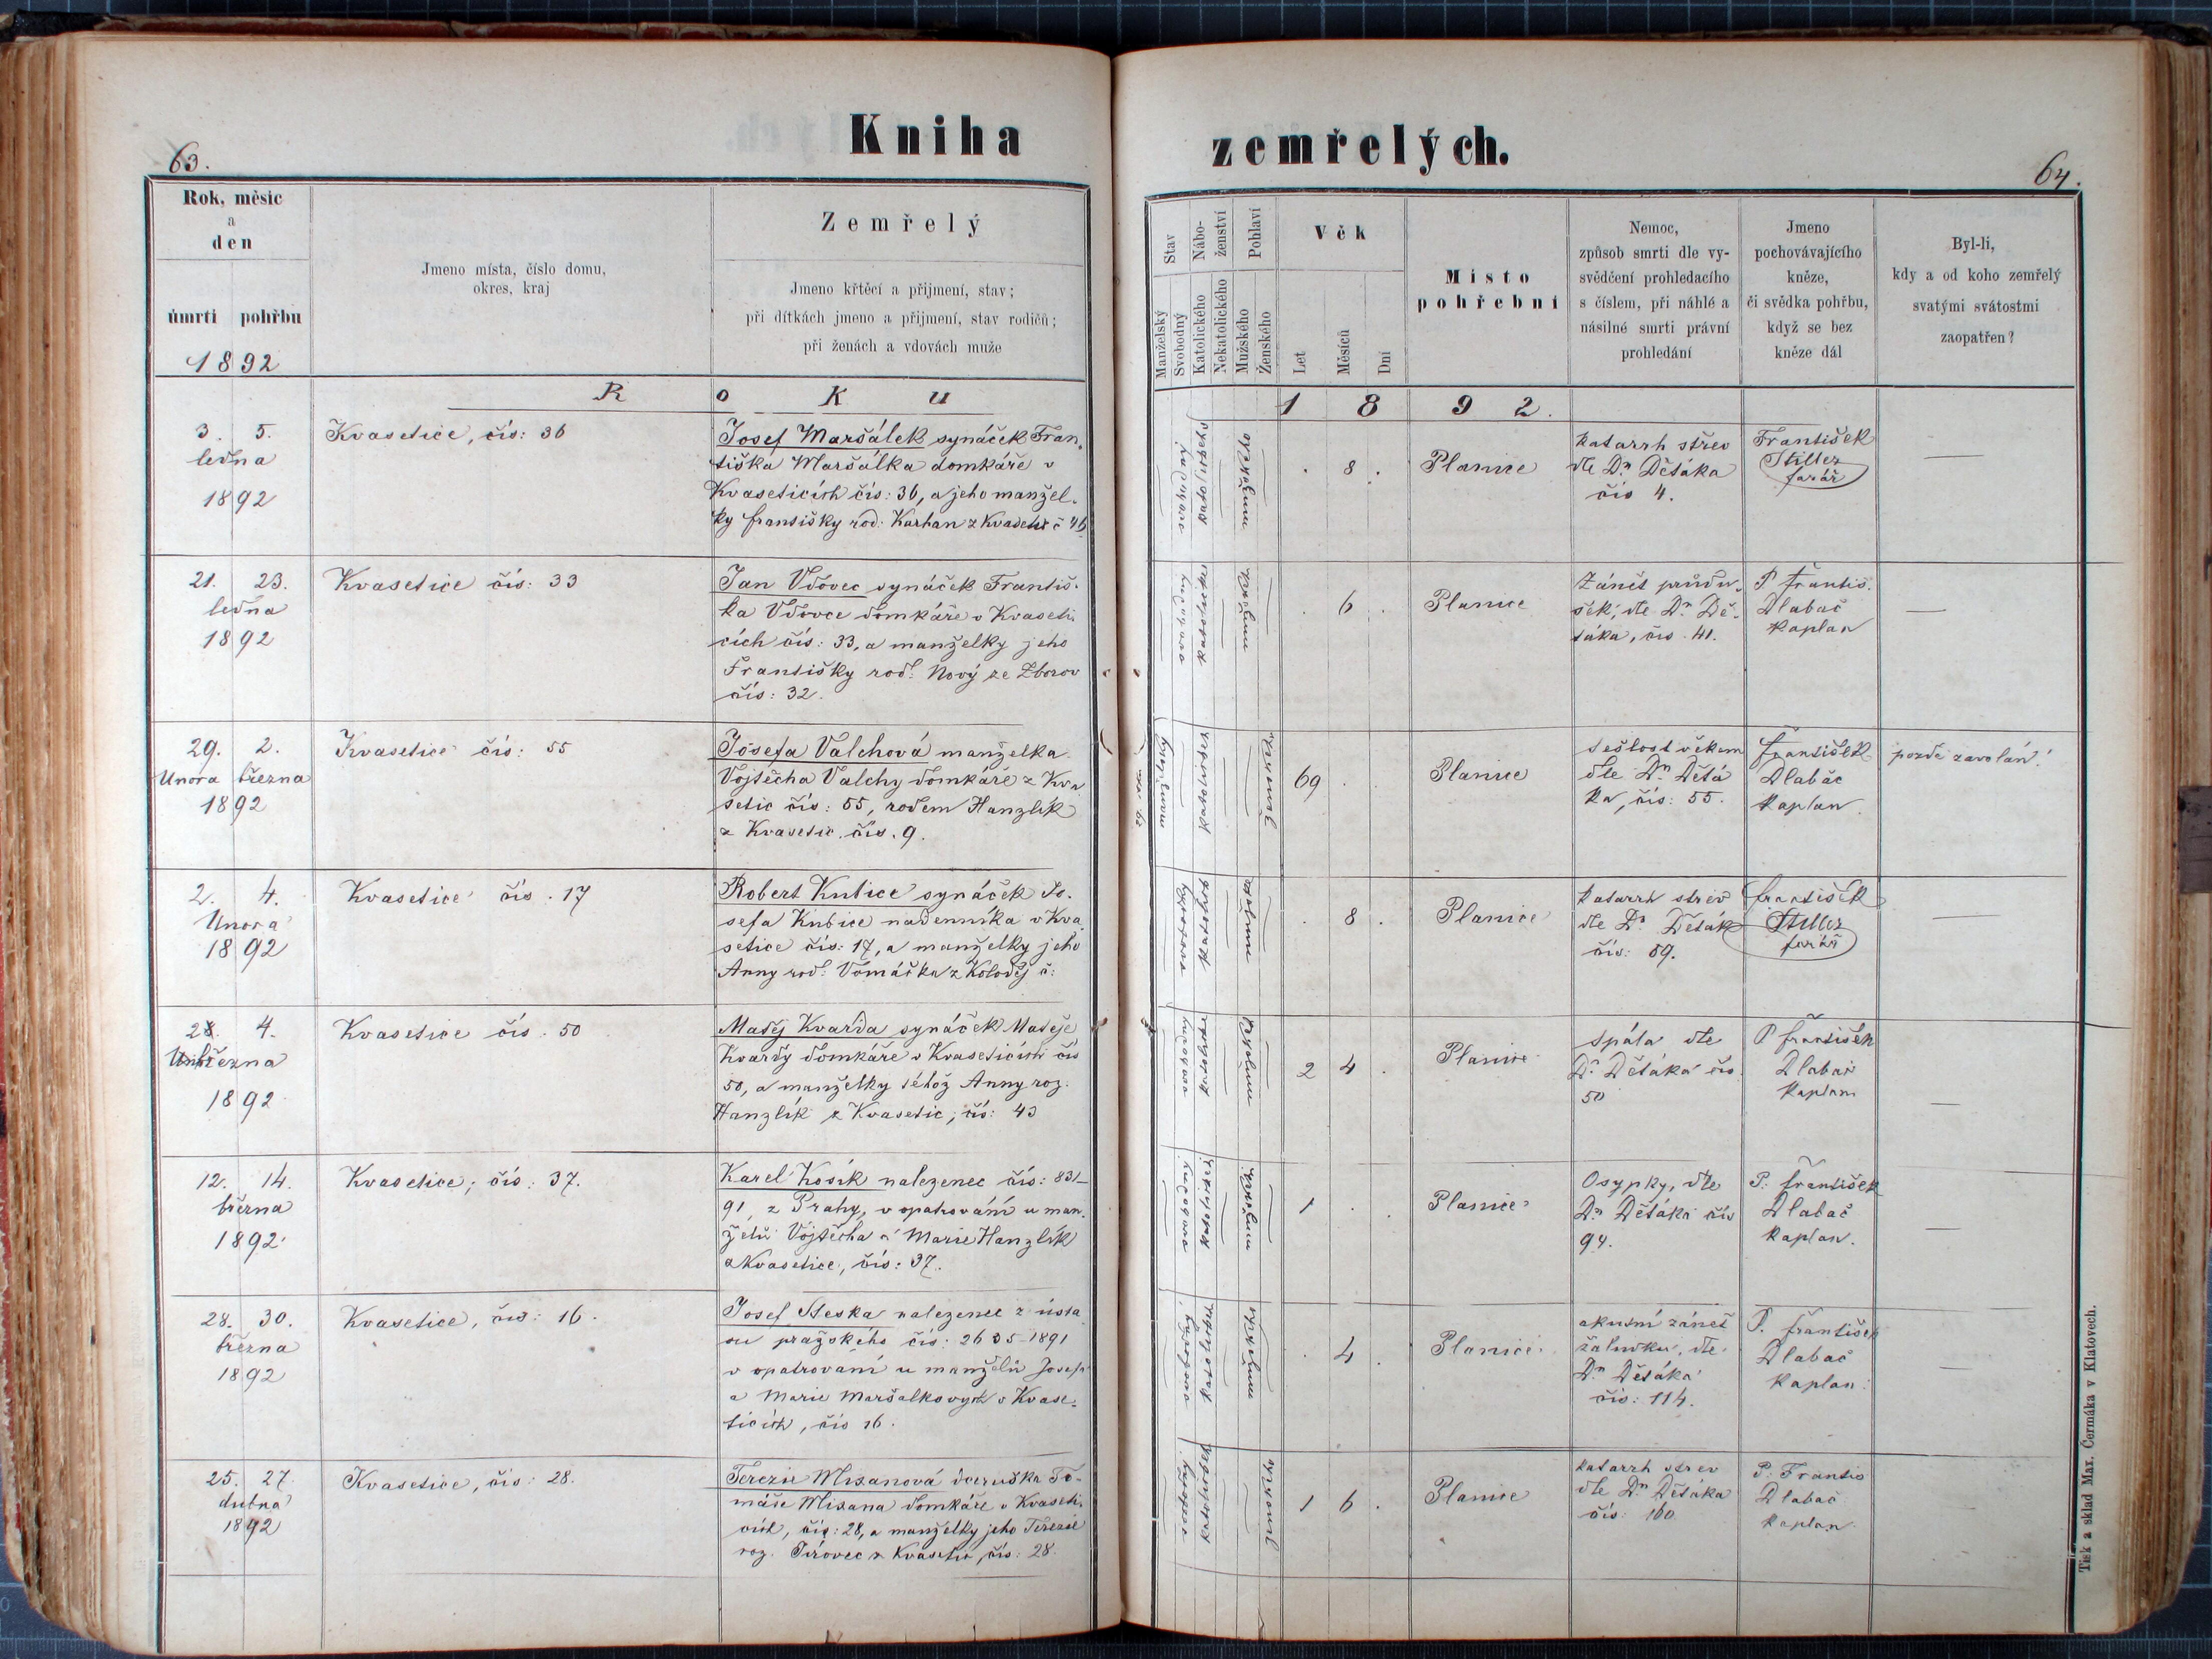 Kniha zemřelých.
63.
64.
Rok, měsíc
a
den
úmrtí pohřbu
1892
Jmeno místa, číslo domu,
okres, kraj
Zemřelý
Jmeno křtěcí a přijmení, stav;
při dítkách jmeno a přijmení, stav rodičů;
při ženách a vdovách muže
Stav
Manželský
Svobodný
Nábo-
ženství
Katolického
Nekatolického
Pohlaví
Mužského
Ženského
Věk
Let
Měsíců
Dní
Místo
pohřební
Nemoc,
způsob smrti dle vy-
svědčení prohledacího
s číslem, při náhlé a
násilné smrti právní
prohledání
Jmeno
pochovávajícího
kněze,
či svědka pohřbu,
když se bez
kněze dál
Byl-li,
kdy a od koho zemřelý
svatými svátostmi
zaopatřen?
Roku 1892.
3. 5.
ledna
1892
Kvasetice, čís: 36
Josef Maršálek synáček Fran-
tiška Maršálka domkáře v
Kvaseticích čís: 36, a jeho manžel-
ky Františky rod. Karhan z Kvasetic č 46
svobodný
katolického
mužského
. 8 .
Planice
katarrh střev
dle Dra Dětáka
čís 4.
František
Stiller
farář
—
21. 23.
ledna
1892
Kvasetice čís: 33
Jan Vdovec synáček Františ-
ka Vdovce domkáře v Kvaseti-
cích čís: 33, a manželky jeho
Františky rod. Nový ze Zborov
čís: 32.
. 6 .
Planice
Zánět průdu-
šek, dle Dra Dě-
táka, čís. 41.
P. Františ.
Dlabač
kaplan
—
29. 2.
Února března
1892
Kvasetice čís: 55
Josefa Valchová manželka
Vojtěcha Valchy domkáře z Kva
setic čís: 55, rodem Hanzlík
z Kvasetic čís. 9.
69 . .
Planice
sešlost věkem
dle Dra Dětá
ka, čís: 55.
František
Dlabač
kaplan
pozdě zavolán!
2. 4.
Února
1892
Kvasetice čís. 17
Robert Kubice synáček Jo-
sefa Kubice nádenníka v Kva
setice čís: 17, a manželky jeho
Anny rod. Vomáčka z Koloděj č:
. 8 .
Planice
katarrh střev
dle Dra Děták
čís: 59.
František
Stiller
farář
—
28. 4.
března
1892
Kvasetice čís. 50
Matěj Kvarda synáček Matěje
Kvardy domkáře v Kvaseticích čís
50, a manželky téhož Anny roz.
Hanzlík z Kvasetic, čís: 43
2 4 .
Planice
spála dle
Dra Dětáka čís.
50
P František
Dlabač
kaplan
—
12. 14.
března
1892
Kvasetice, čís: 37.
Karel Kosík nalezenec čís: 831-
91, z Prahy, v opatrování u man-
želů Vojtěcha a Marie Hanzlík
z Kvasetice, čís: 37.
1 . .
Planice
Osypky, dle
Dra Dětáka čís
94.
P. František
Dlabač
kaplan.
—
28. 30.
března
1892
Kvasetice, čís: 16.
Josef Steska nalezenec z ústa
vu pražského čís: 2635-1891
v opatrovaní u manželů Josefa
a Marie Maršalkových v Kvase-
ticích, čís 16.
. 4 .
Planice
akutní zánět
žaludku, dle
Dra Dětáka
čís: 114.
P. František
Dlabač
kaplan
—
25. 27.
dubna
1892
Kvasetice, čís: 28.
Terezie Mizanová dceruška To-
máše Mizana domkáře v Kvaseti-
cích, čís: 28, a manželky jeho Terezie
roz. Jírovec z Kvasetic, čís: 28.
1 6 .
Planice
katarrh střev
dle Dra Dětáka
čís: 160
P. Františ
Dlabač
kaplan
Tisk a sklad Max. Čermáka v Klatovech.